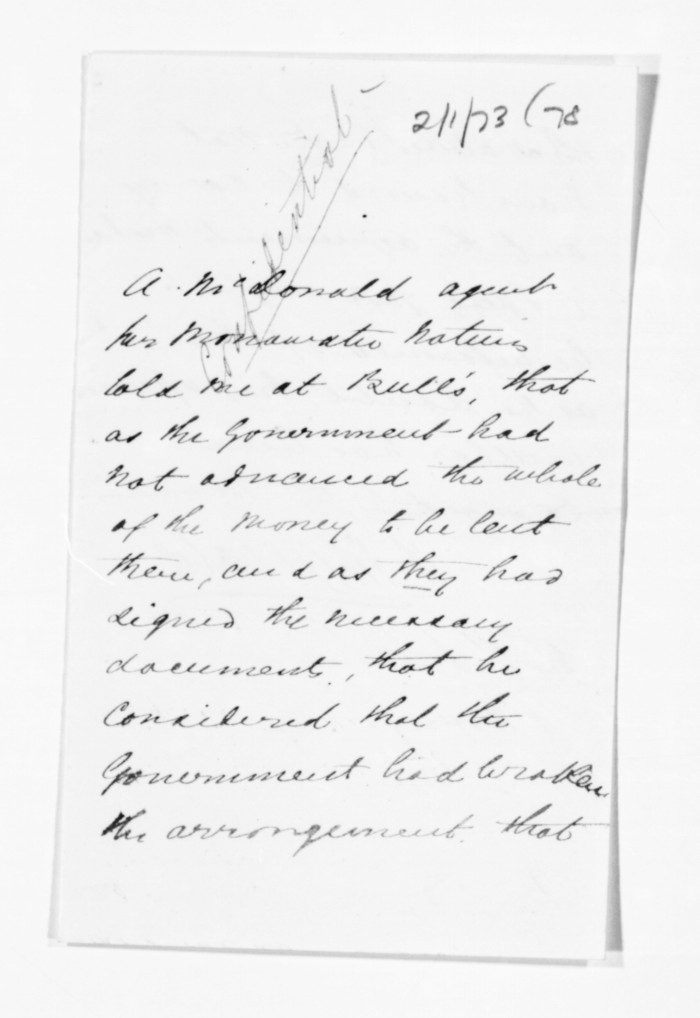 2/1/73 (78
Confidential
A. McDonald agent
for Manawatu Natives
told me at Bull's, that
as the Government had
not advanced the whole
of the money to be lent
them, and as they had
signed the necessary
documents, that he
considered that the
Government had broken
the arrangement. that